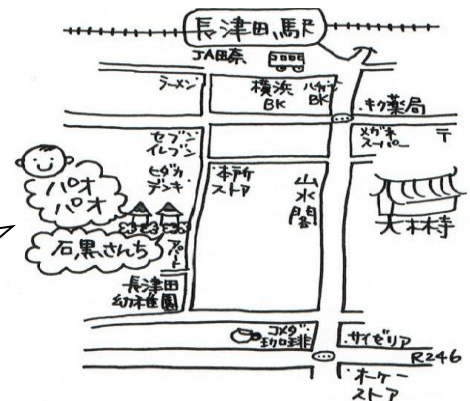 長津田駅
JA田奈
ラーメン
横浜
BK
ハザマ
BK
キク薬局
セブン
イレブン
メガネ
スーパー
〒
ヒダカ
デンキ
本所
ストア
山水閣
大林寺
パオ
パオ
石黒さんち
アパート
長津田
幼稚園
コメダ
珈琲
サイゼリア
R246
オーケー
ストア